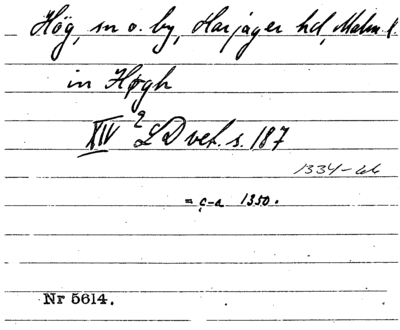 Hög, sn o. by, Harjager hd, Malm. l.
in Høgh
XIV 2 LD vet. s. 187
1334-66
= c-a 1350.
Nr 5614.